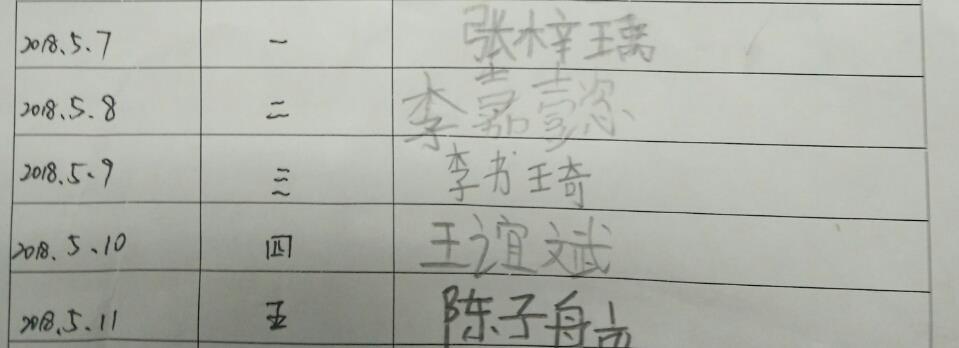 2018.5.7 一 张梓瑀
2018.5.8 二 李嘉懿
2018.5.9 三 李书琦
2018.5.10 四 王谊斌
2018.5.11 五 陈子